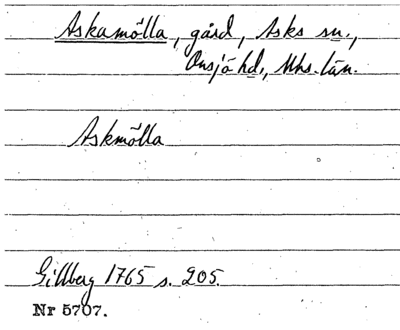 Askamölla, gård, Asks sn.,
Onsjö hd., Mhs. län.
Askmölla
Gillberg 1765 s. 205.
Nr 5707.